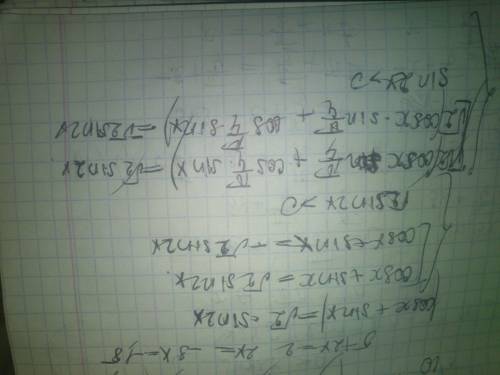 5+2x=2 2x=-3 x=-1,5
|cosx + sinx| = √2 · sin2x
cosx + sinx = √2 sin2x
cosx + sinx = -√2 sin2x
√2 sin2x > 0
√2(cosx sin π/4 + cos π/4 · sinx) = √2 sin2x
√2(cosx · sin π/4 + cos π/4 · sinx) = -√2 sin2x
sin 2x > 0